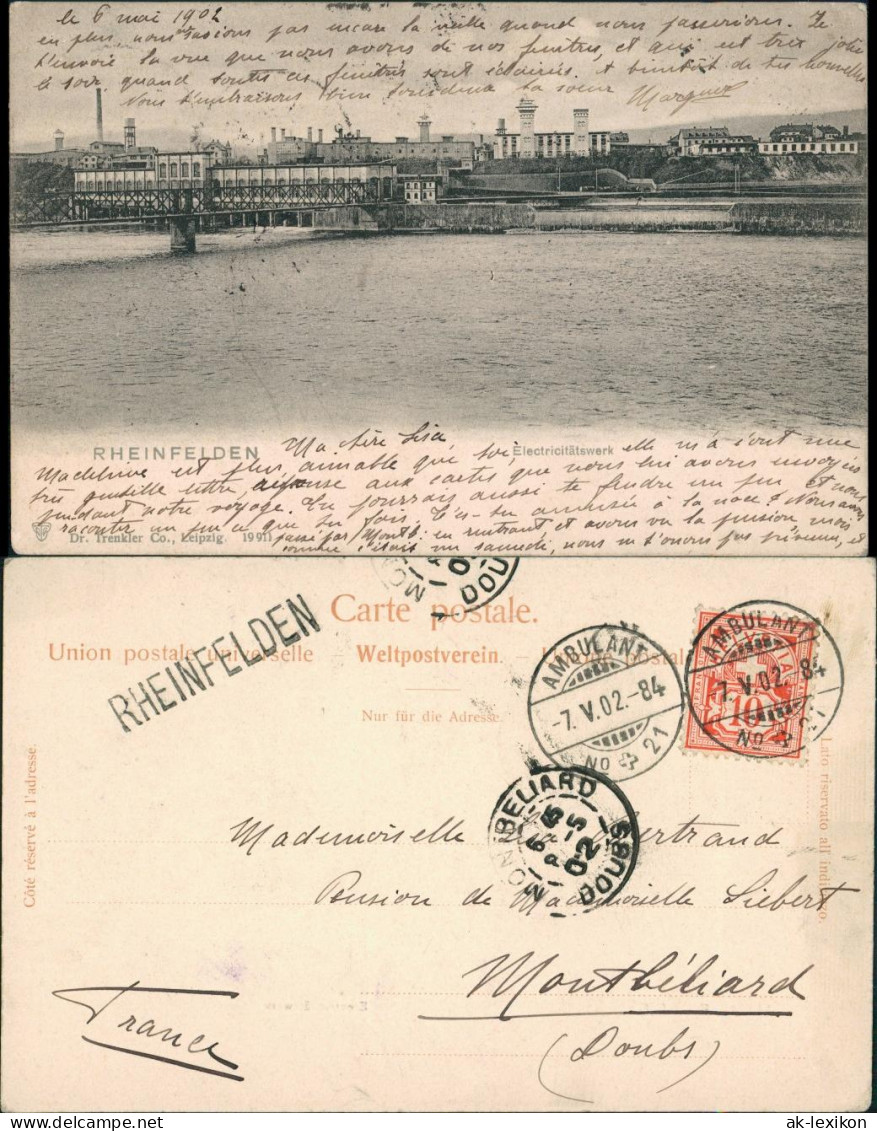 le 6 mai 1902
en plus, nous avions pas encore la veille quand nous passerions. Je
t'envoie la vue que nous avons de nos fenêtres, et qui est très jolie
le soir, quand toutes ces fenêtres sont éclairées. A bientôt de tes nouvelles
Nous t'embrassons bien ta soeur
RHEINFELDEN
Ma chère Lisa
Electricitätswerk
Madeleine est plus aimable que toi, elle m'a écrit une
très gentille lettre, réponse aux cartes que nous lui avons envoyées
pendant notre voyage. Tu pourrais aussi te fendre un peu et nous
raconter un peu ce que tu fais. T'es-tu amusée à la noce? Nous avons
Dr. Trenkler Co., Leipzig. 19911
passé par Montb. en rentrant et avons vu la pension, mais
comme c'était un samedi, nous n'osons pas et
MO
DOU
Carte postale.
Union postale universelle – Weltpostverein. – Unione postale
RHEINFELDEN
Nur für die Adresse.
AMBULANT
-7.V.02.-84
No 21
AMBULANT
-7.V.02.-84
No 21
10
Côté réservé à l'adresse.
Lato riservato all' indirizzo.
MONTBELIARD
02
DOUBS
Mademoiselle Bertrand
Pension de Mademoiselle Siebert
Montbéliard
(Doubs)
France
ak-lexikon